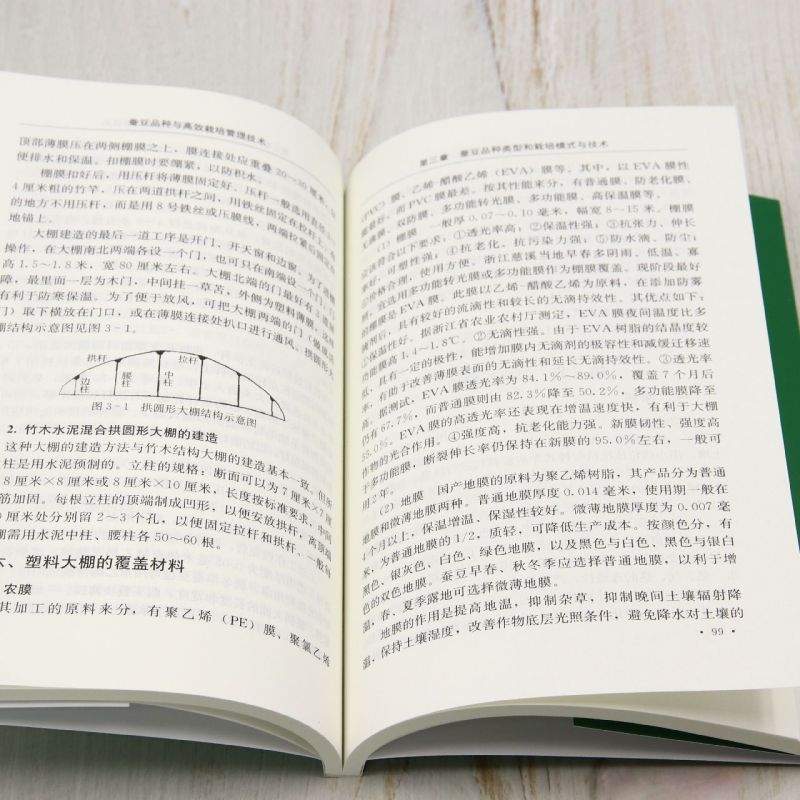 蚕豆品种与高效栽培管理技术
顶部薄膜压在两侧棚膜之上，膜连接处应重叠20～30厘米，以
便排水和保温。扣棚膜时要绷紧，以防积水。
棚膜扣好后，用压杆将薄膜固定好。压杆一般选用直径3～
4厘米粗的竹竿，压在两道拱杆之间，用铁丝固定在拉杆上。
的地方不用压杆，而是用8号铁丝或压膜线，两端拉紧后固定在
地锚上。
大棚建造的最后一道工序是开门、开天窗和边窗。为了
操作，在大棚南北两端各设一个门，也可只在南端设一个门，门
高1.5～1.8米，宽80厘米左右。大棚北端的门最好有3道
障，最里面一层为木门，中间挂一草苫，外侧为塑料薄膜，这样
有利于防寒保温。为了便于放风，可把大棚两端的门
门）取下横放在门口，或在薄膜连接处扒口进行通风。拱圆形大
棚结构示意图见图3-1。
拱杆
拉杆
边柱
腰柱
中柱
图3-1 拱圆形大棚结构示意图
2. 竹木水泥混合拱圆形大棚的建造
这种大棚的建造方法与竹木结构大棚的建造基本一致，但所
柱是用水泥预制的。立柱的规格：断面可以为7厘米×7厘
8厘米×8厘米或8厘米×10厘米，长度按标准要求，中间
筋加固。每根立柱的顶端制成凹形，以便安放拱杆，离顶端
厘米处分别留2～3个孔，以便固定拉杆和拱杆，一般每
棚需用水泥中柱、腰柱各50～60根。
六、塑料大棚的覆盖材料
农膜
其加工的原料来分，有聚乙烯（PE）膜、聚氯乙烯
第三章 蚕豆品种类型和栽培模式与技术
（PVC）膜、乙烯-醋酸乙烯（EVA）膜等。其中，以EVA膜性
能最好，而PVC膜最差。按其性能来分，有普通膜、防老化膜、
无滴膜、双防膜、多功能转光膜、多功能膜、高保温膜等。
（1）棚膜 一般厚0.07～0.10毫米，幅宽8～15米。棚膜
应该符合以下要求：①透光率高；②保温性强；③抗张力、伸长
率好，可塑性强；④抗老化、抗污染力强；⑤防水滴、防尘；
⑥价格合理，使用方便。浙江慈溪当地早春多阴雨、低温、寡
照，宜选用多功能转光膜或多功能膜作为棚膜覆盖。现阶段最好
的棚膜是EVA膜。此膜以乙烯-醋酸乙烯为原料，在添加防雾
滴剂后，具有较好的流滴性和较长的无滴持效性。其优点如下：
①保温性好。据浙江省农业农村厅测定，EVA膜夜间温度比多
功能膜高1.4～1.8℃。②无滴性强。由于EVA树脂的结晶度较
低，具有一定的极性，能增加膜内无滴剂的极容性和减缓迁移速
率，有助于改善薄膜表面的无滴性和延长无滴持效性。③透光率
高。据测试，EVA膜透光率为84.1%～89.0%，覆盖7个月后
仍有67.7%，而普通膜则由82.3%降至50.2%，多功能膜降至
55.0%。EVA膜的高透光率还表现在增温速度快，有利于大棚
作物的光合作用。④强度高，抗老化能力强。新膜韧性、强度高
于多功能膜，断裂伸长率仍保持在新膜的95.0%左右，一般可
用2年。
（2）地膜 国产地膜的原料为聚乙烯树脂，其产品分为普通
地膜和微薄地膜两种。普通地膜厚度0.014毫米，使用期一般在
4个月以上，保温增温、保湿性较好。微薄地膜厚度为0.007毫
米，为普通地膜的1/2，质轻，可降低生产成本。按颜色分，有
黑色、银灰色、白色、绿色地膜，以及黑色与白色、黑色与银白
色的双色地膜。蚕豆早春、秋冬季应选择普通地膜，以利于增
温，春、夏季露地可选择微薄地膜。
地膜的作用是提高地温，抑制杂草，抑制晚间土壤辐射降
温，保持土壤湿度，改善作物底层光照条件，避免降水对土壤的
· 99 ·